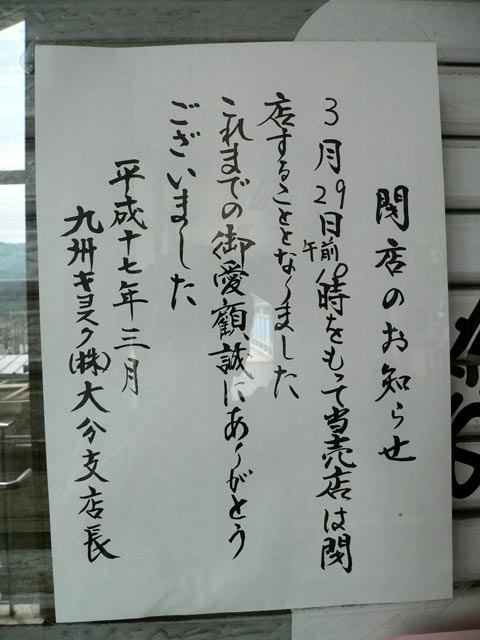 閉店のお知らせ
3月29日午前9時をもって当売店は閉
店することとなりました
これまでの御愛顧誠にありがとう
ございました
平成十七年三月
九州キヨスク(株)大分支店長